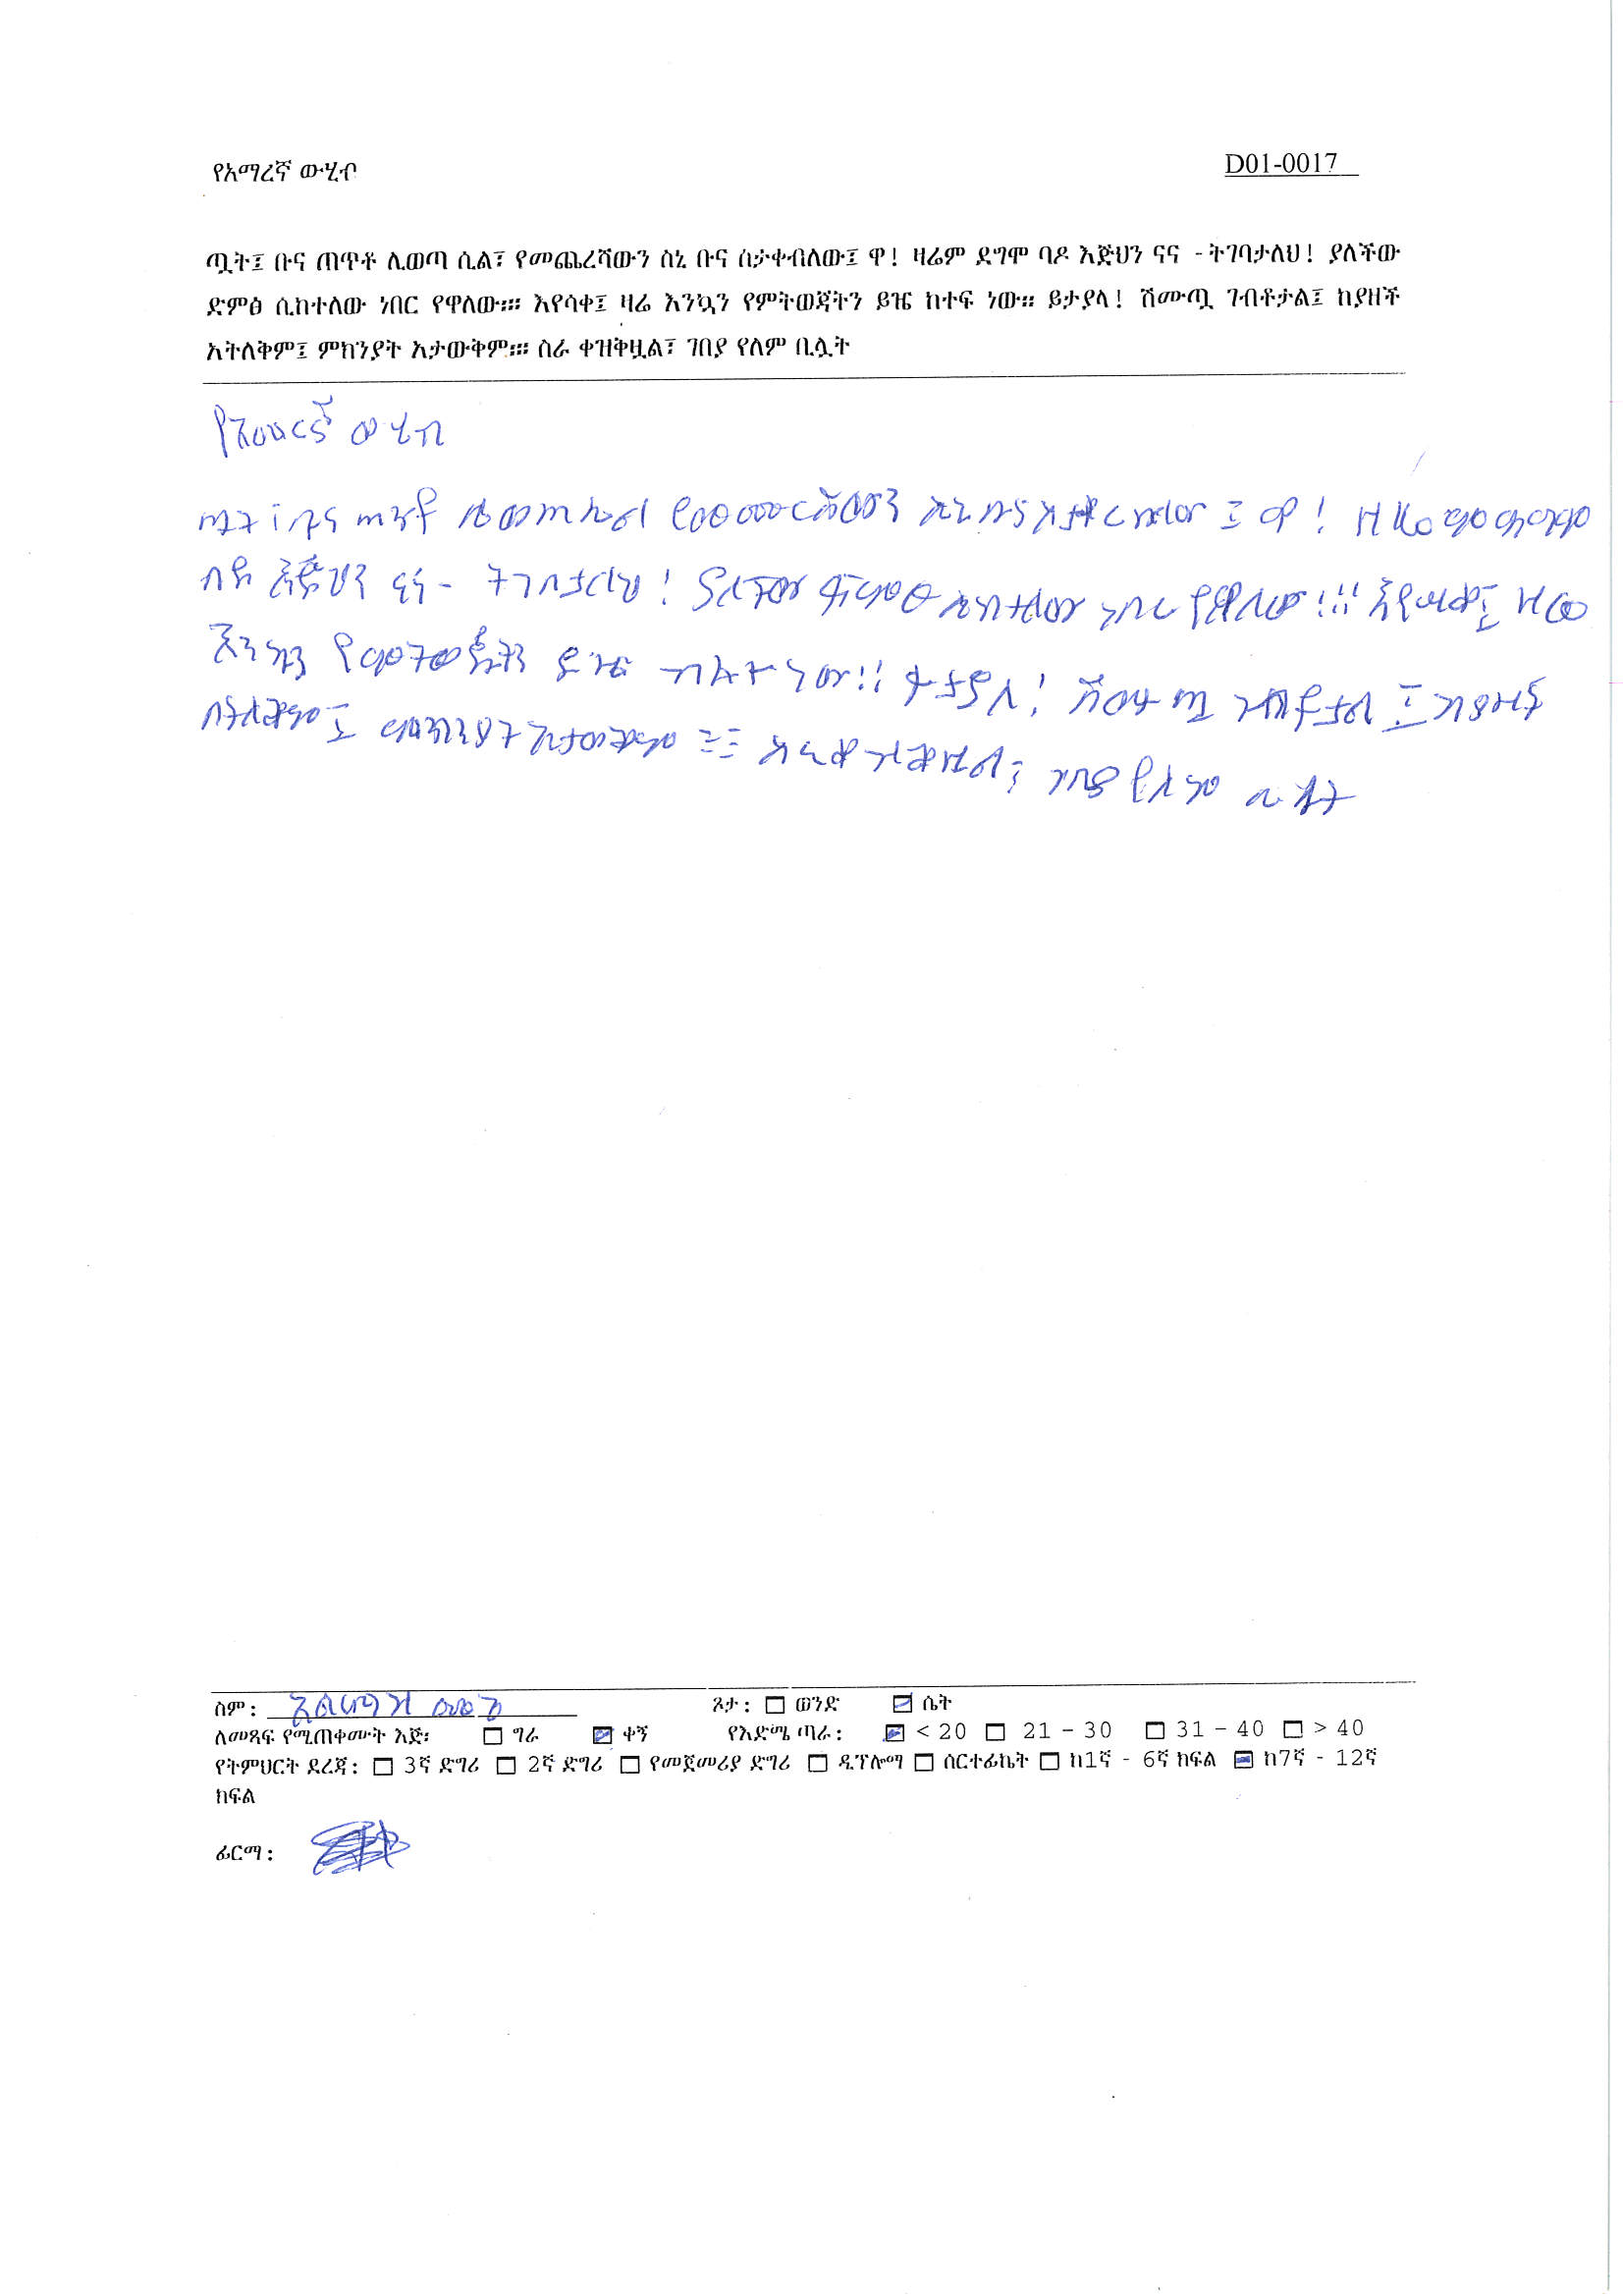 የአማረኛ ውሂብ
D01-0017
ጧት፤ ቡና ጠጥቶ ሊወጣ ሲል፣ የመጨረሻውን ስኒ ቡና ስታቀብለው፤ ዋ! ዛሬም ደግሞ ባዶ እጅህን ናና -ትገባታለህ! ያለችው
ድምፅ ሲከተለው ነበር የዋለው፡፡፡ እየሳቀ፤ ዛሬ እንኳን የምትወጃትን ይዤ ከተፍ ነው፡፡ ይታያላ! ሽሙጧ ገብቶታል፤ ከያዘች
አትለቅም፤ ምክንያት አታውቅም፡፡፡ ስራ ቀዝቅዟል፣ ገበያ የለም ቢሏት
የአመረኛ ውሂብ
ቡና ጠጥቶ ሊወጣ ሲል የመጨረሻውን ስኒ ቡና ስታቀብለው ፤ ዋ! ዛሬም ደግሞ
ባዶ እጅህን ናና - ትገባታለህ! ያለችው ድምፅ ሲከተለው ነበር የዋለው፡፡፡ እየሳቀ፤ ዛሬ
እንኳን የምትወጃትን ይዤ ከተፍ ነው፡፡ ይታያላ! ሽሙጧ ገብቶታል ፤ ከያዘች
አትለቅም፤ ምክንያት አታውቅም ፡፡፡ ስራ ቀዝቅዟል፣ ገበያ የለም ቢሏት
ስም:
ጾታ: ወንድ ሴት
ለመጻፍ የሚጠቀሙት እጅ፡ ግራ ቀኝ የእድሜ ጣራ: < 20 21 - 30 31 - 40 > 40
የትምህርት ደረጃ: 3ኛ ድግሪ 2ኛ ድግሪ የመጀመሪያ ድግሪ ዲፕሎማ ሰርተፊኬት ከ1ኛ - 6ኛ ክፍል ከ7ኛ - 12ኛ
ክፍል
ፊርማ: